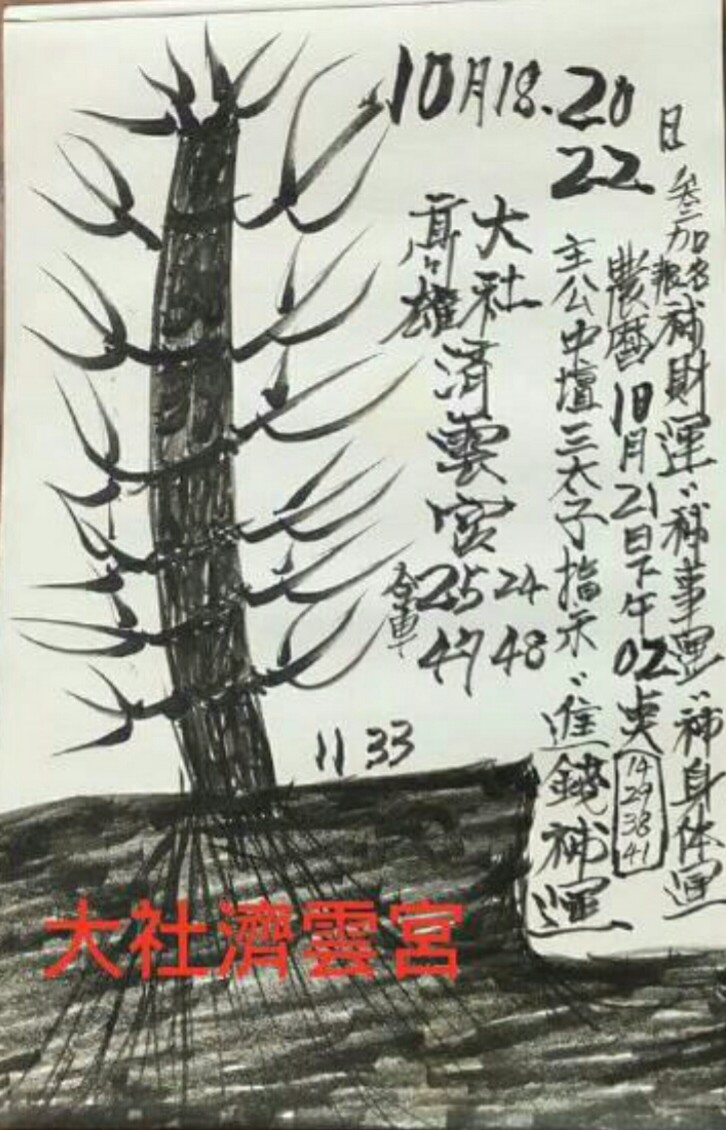 10月18.20
22
日參加報名補財運〃補事運〃補身体運
農曆10月21日下午02
14
29
38
41
主公中壇三太子指示〃進錢補運
大社
高雄
濟雲宮
合車
25 24
47 48
11 33
大社濟雲宮